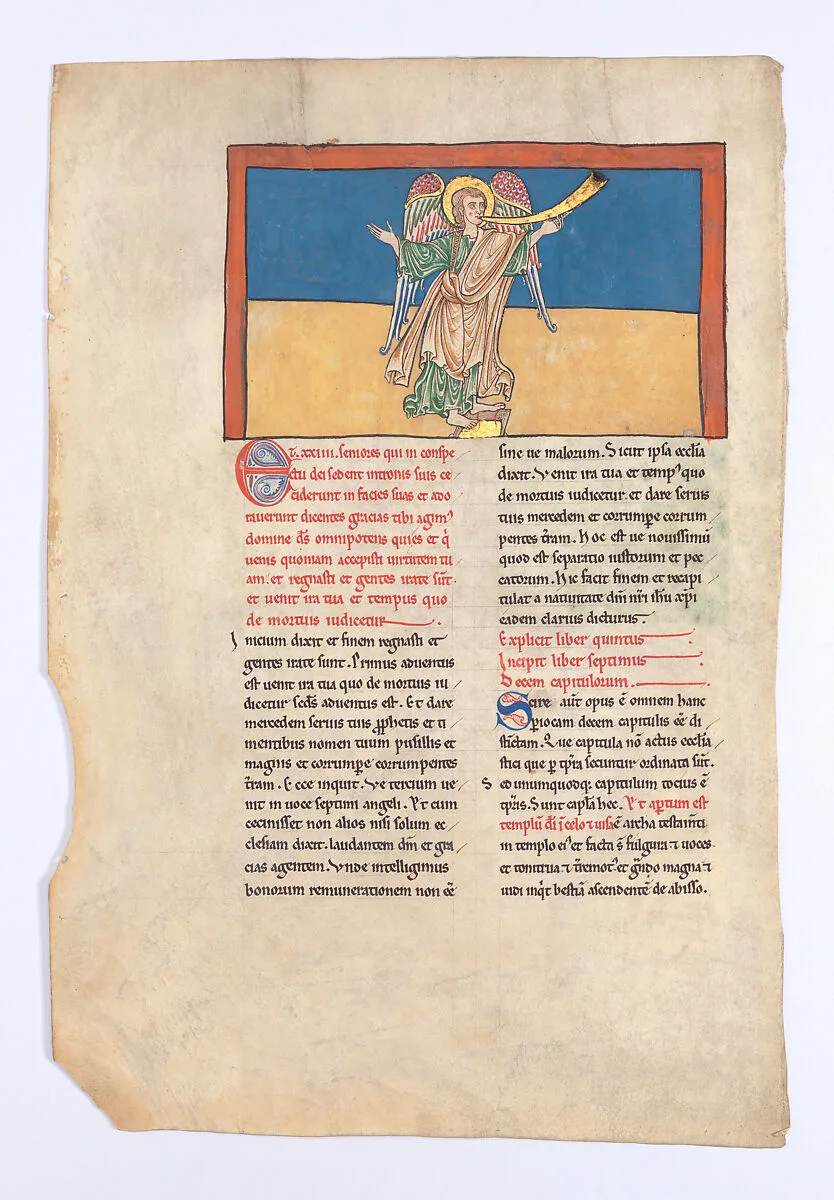 Et .xxiiii. seniores qui in conspe
ctu dei sedent in tronis suis ce
ciderunt in facies suas et ado
raverunt dicentes gracias tibi agimꝰ
domine d̅s omnipotens qui es et q̇
venis quoniam accepisti virtutem tu
am. et regnasti et gentes irate su̅t.
et venit ira tua et tempus quo
de mortuis iudicetur
Inicium dixit et finem regnasti et
gentes irate sunt. Primus adventus
est venit ira tua quo de mortuis iu
dicetur sc̅ds adventus est. Et dare
mercedem servis tuis ꝓphetis et ti
mentibus nomen tuum pusillis et
magnis et corrumpe̅ corrumpentes
t̅ram. Ecce inquit. Ve tercium ve
nit in voce septimi angeli. Et cum
cecinisset non alios nisi solum ec
clesiam dixit. laudantem dm̅ et gra
cias agentem. Unde intelligimus
bonorum remunerationem non ee̅
sine ve malorum. Sicut ipsa eccl̅ia
dixit. Venit ira tua et tempꝰ quo
de mortuis iudicetur et dare servis
tuis mercedem et corrumpe̅ corrum
pentes t̅ram. Hoc est ve novissimu̅
quod est separatio iustorum et pec
catorum. Hic facit finem et recapi
tulat a nativitate dm̅i nr̅i ihu̅ xp̅i
eadem clarius dicturus.
Explicit liber quintus
Incipit liber septimus
Decem capitulorum.
Scire aut̅ opus e̅ omnem hanc
p̱iocam decem capitulis ee̅ di
sti̅ctam. Que capitula no̅ actus eccl̅ia
stici que p̱ t̅pra secuntur ordinata su̅t.
Sed unumquodqꝫ capitulum tocius e̅
tp̅ris. Sunt capl̅a hec. Et ap̱tum est
templu̅ di̅ i̅ celo ⁊ visa e̅ archa testam̅ti
in templo eiꝰ et facta s̅ fulgura ⁊ voces
et tonitrua ⁊ t̅remotꝰ et g̅ndo magna ⁊
vidi inq̇t bestia̅ ascendente̅ de abisso.